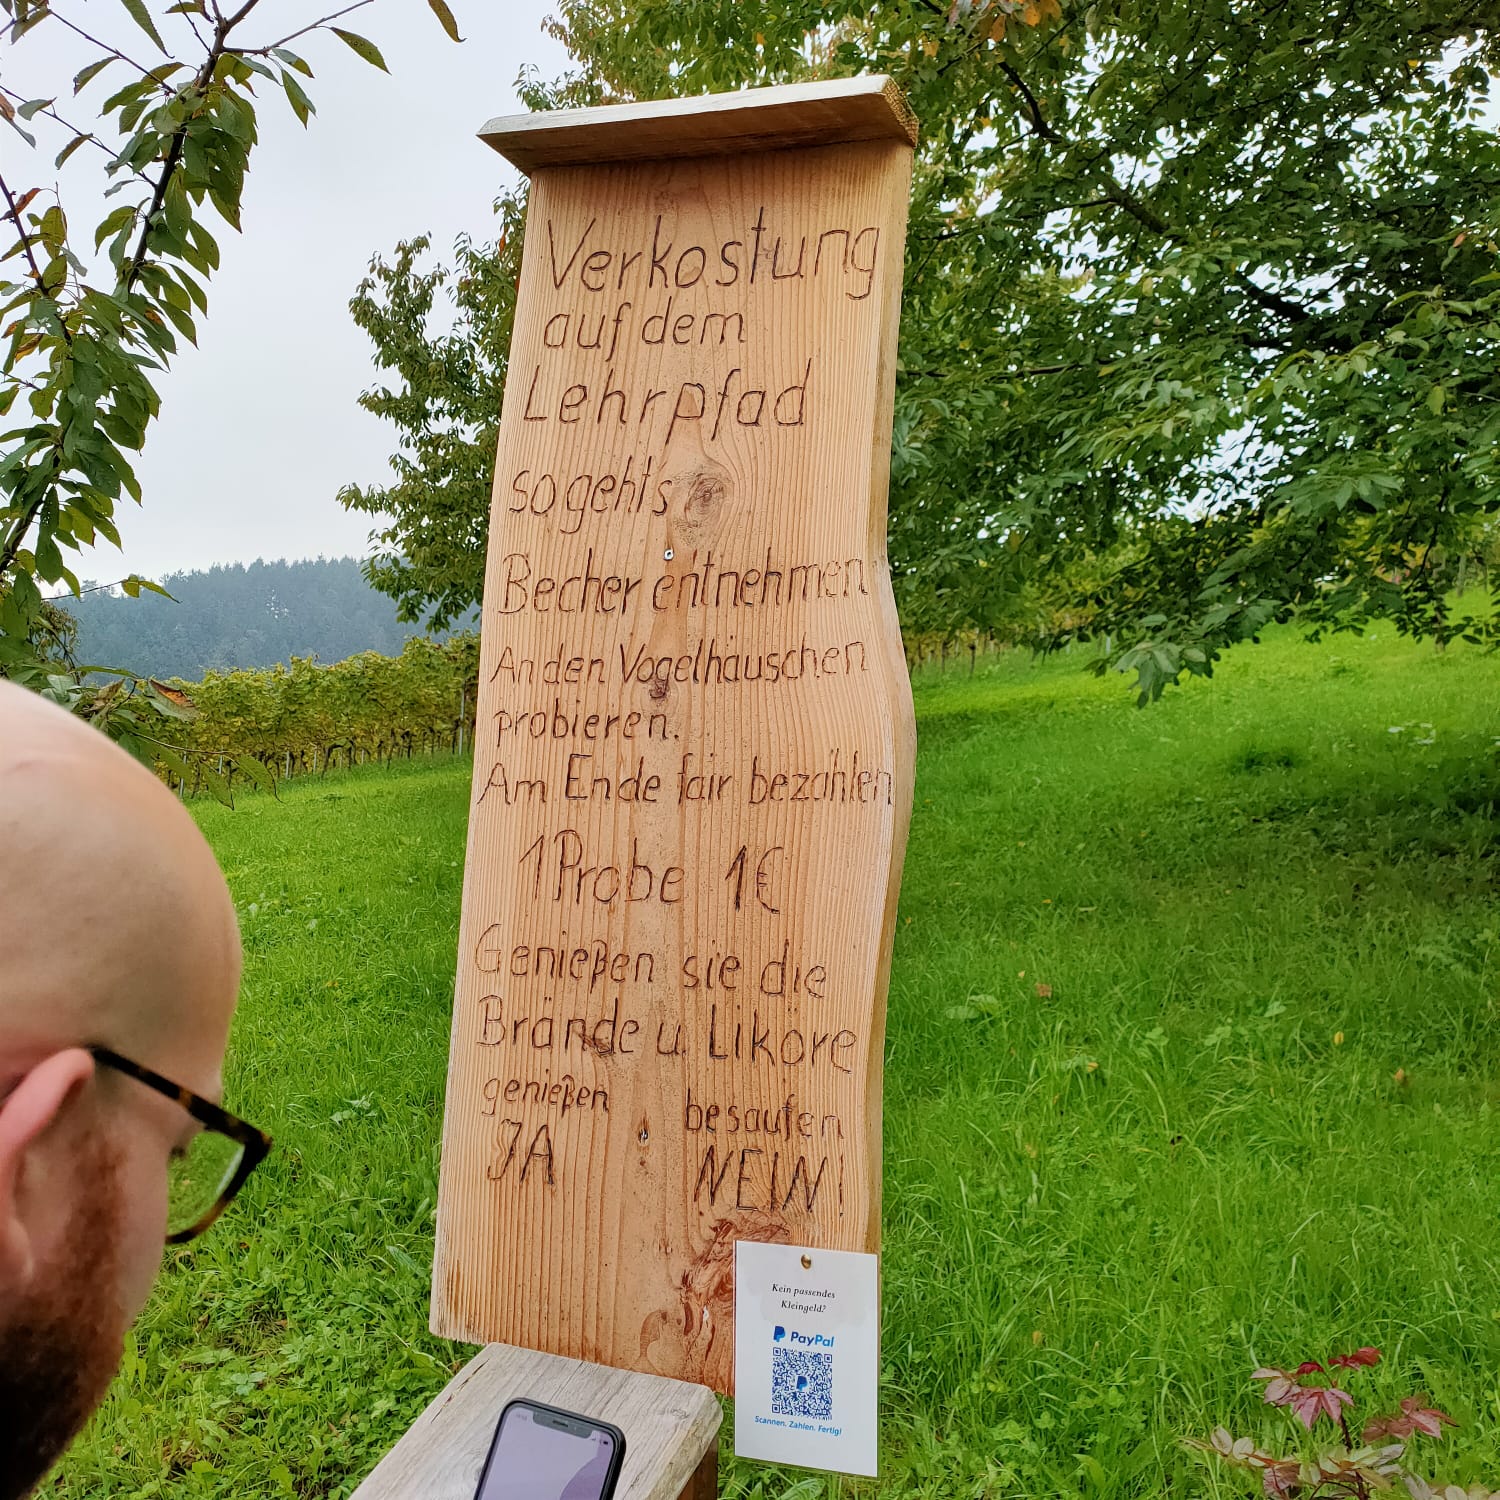 Verkostung
auf dem
Lehrpfad
so gehts
Becher entnehmen
An den Vogelhäuschen
probieren.
Am Ende fair bezahlen
1 Probe 1€
Genießen sie die
Brände u. Liköre
genießen besaufen
JA NEIN!
Kein passendes
Kleingeld?
PayPal
Scannen. Zahlen. Fertig!